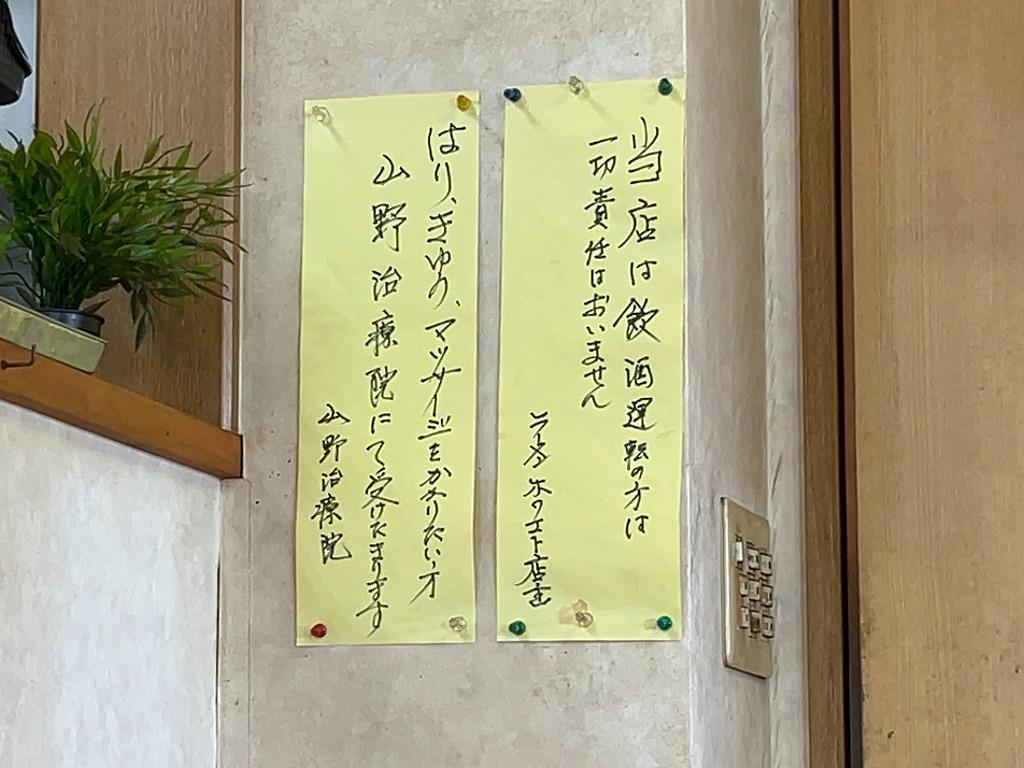 当店は飲酒運転の方は
一切責任はおいません
店主
はり、きゅう、マッサージをかかりたい方
山野治療院にて受けたまります
山野治療院